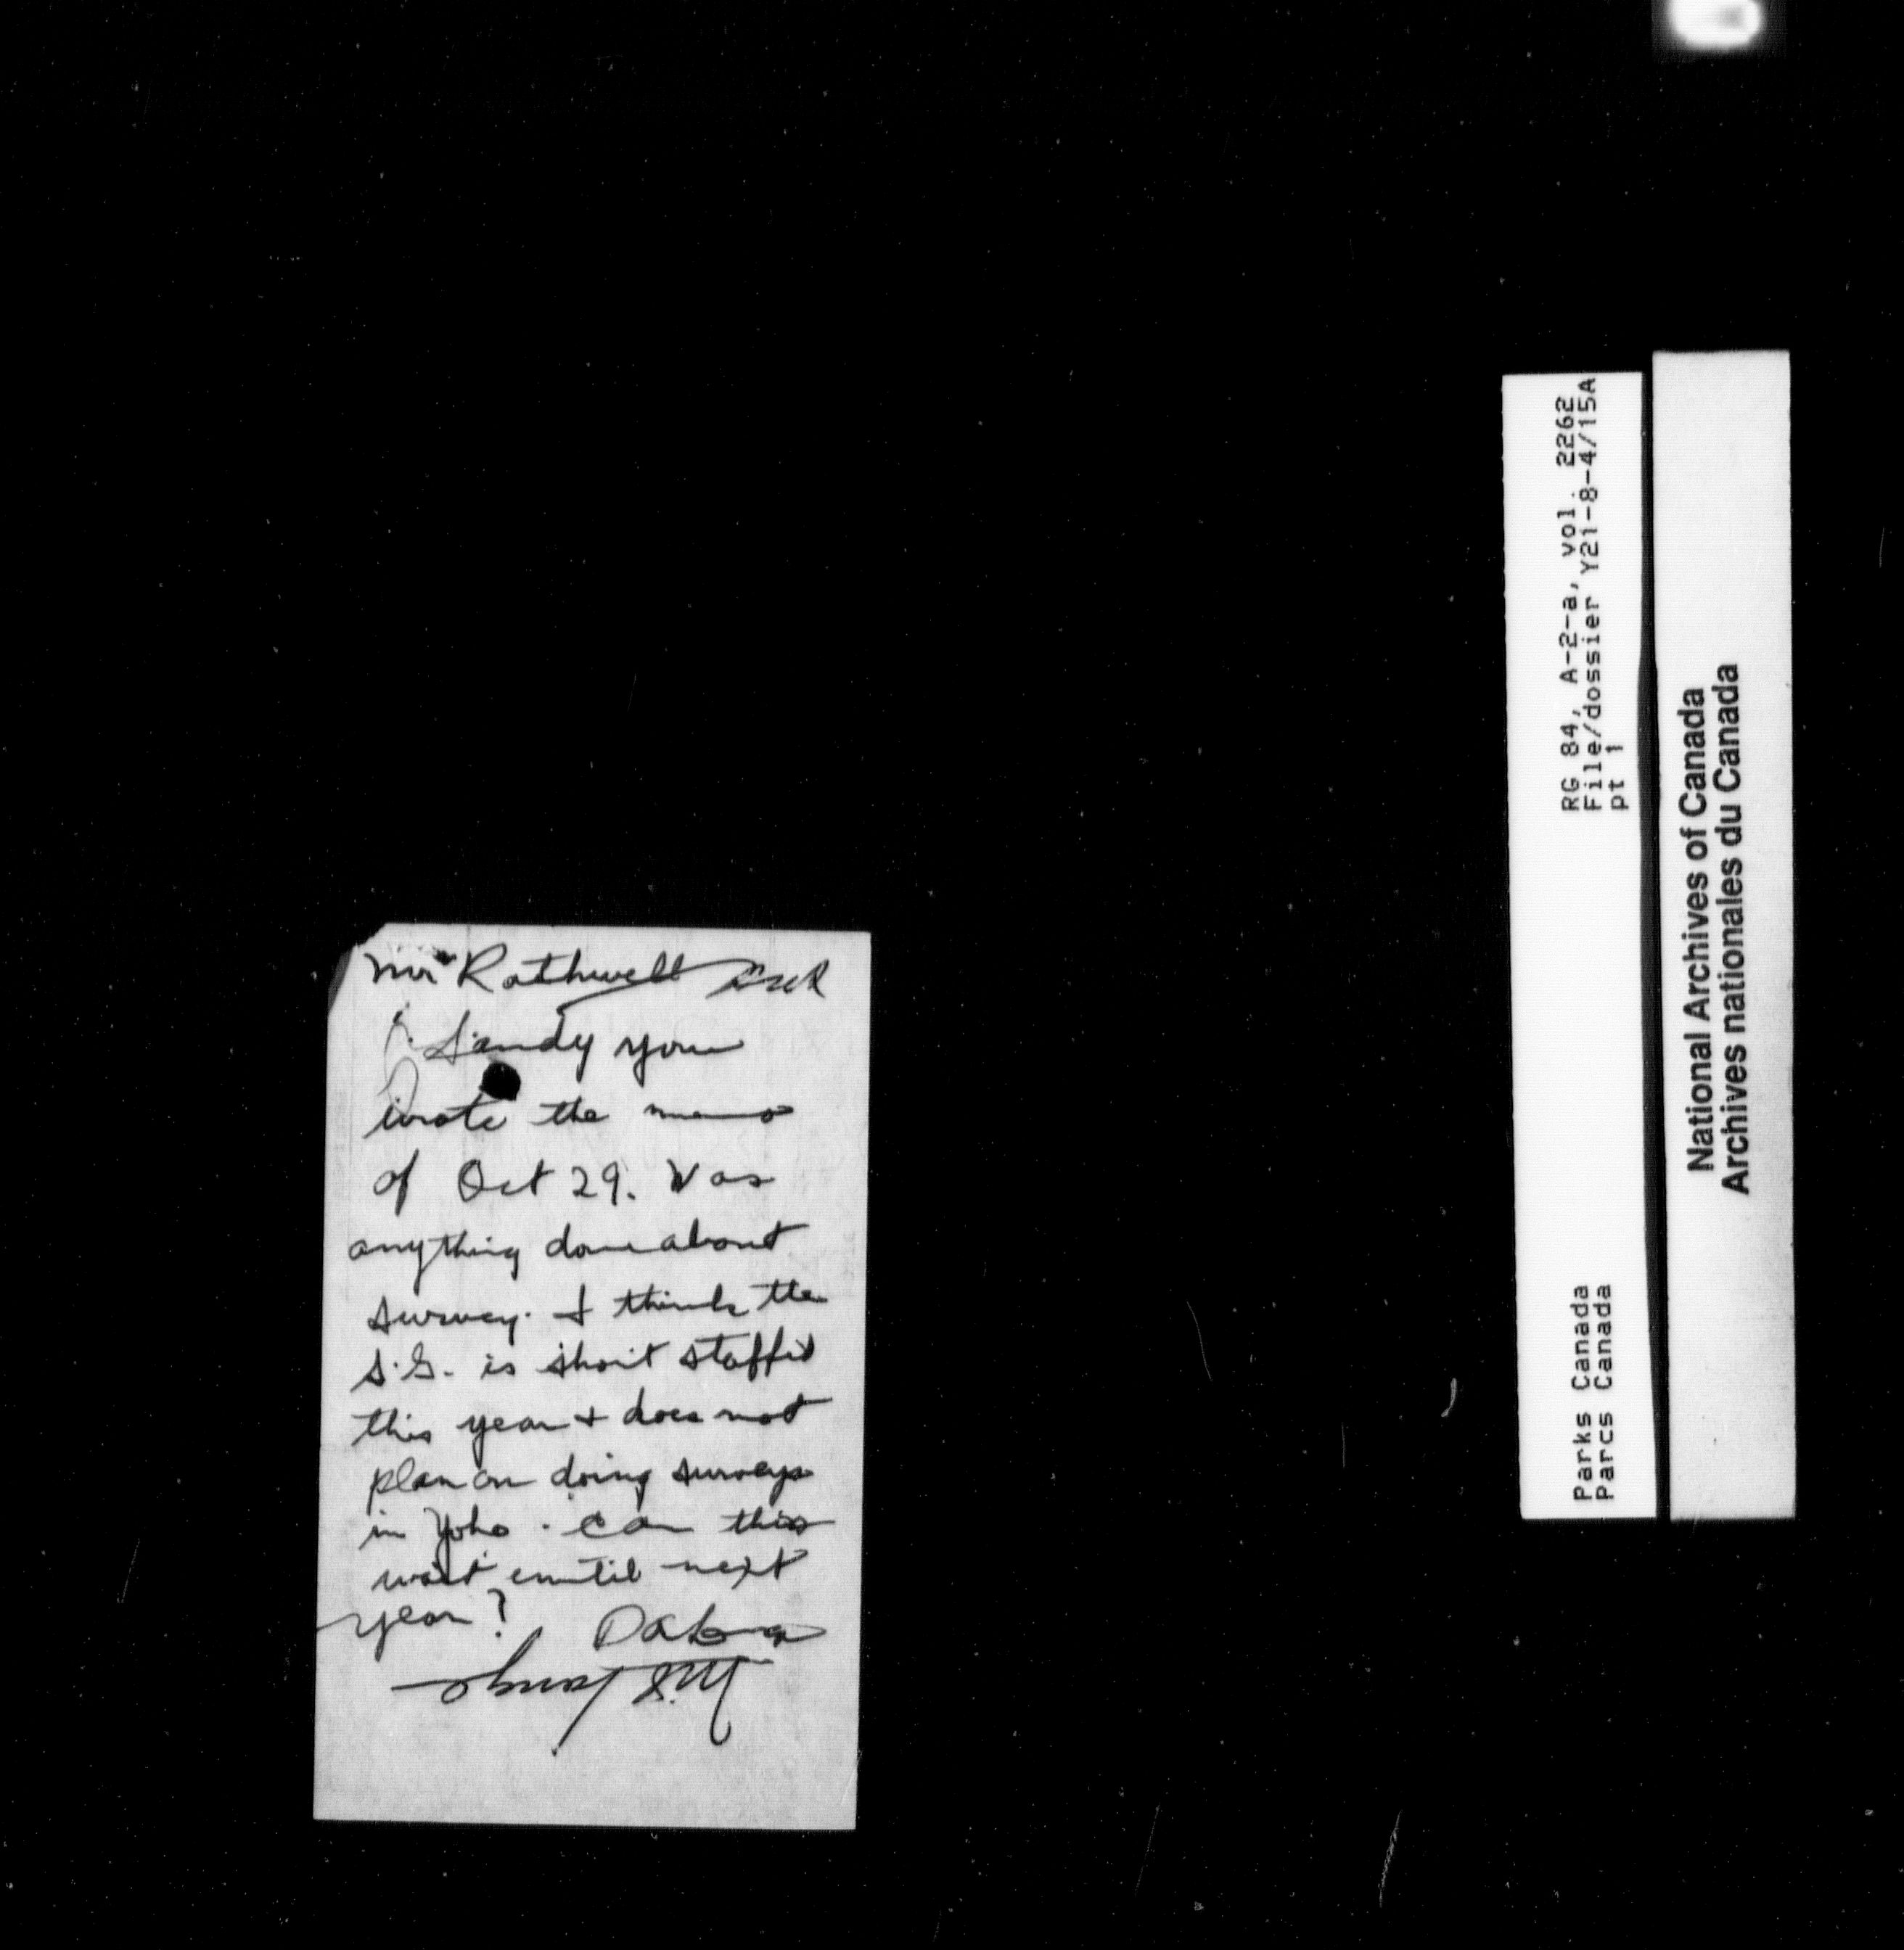 Mr Rothwell
Sandy you
wrote the memo
of Oct 29. Was
anything done about
survey. I think the
S.G. is short staffed
this year + does not
plan on doing surveys
in Yoho. Can this
wait until next
year?
RG 84, A-2-a, vol. 2262
File/dossier Y21-8-4/15A
pt 1
Parks Canada
Parcs Canada
National Archives of Canada
Archives nationales du Canada